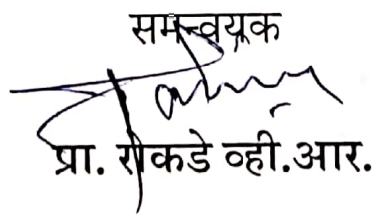 समन्वयक
प्रा. रोकडे व्ही.आर.